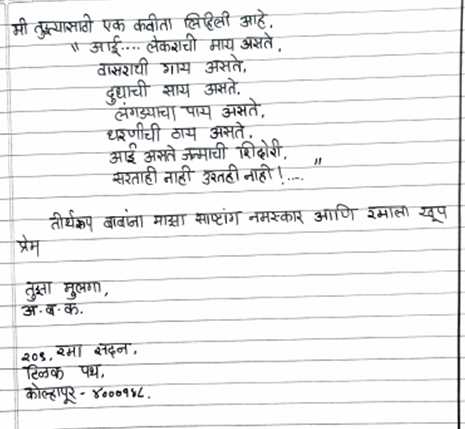 मी तुझ्यासाठी एक कवीता लिहिली आहे.
" आई.... लेकराची माय असते,
वासराची गाय असते,
दुधाची साय असते.
लंगड्याचा पाय असते,
धरणीची ठाय असते.
आई असते जन्माची शिदोरी,
सरताही नाही उरतही नाही !.... "
तीर्थरूप बाबांना माझा साष्टांग नमस्कार आणि रमाला खूप
प्रेम
तुझा मुलगा,
अ.ब.क.
२०९, रमा सदन,
टिळक पथ,
कोल्हापूर - ४०००१४८.